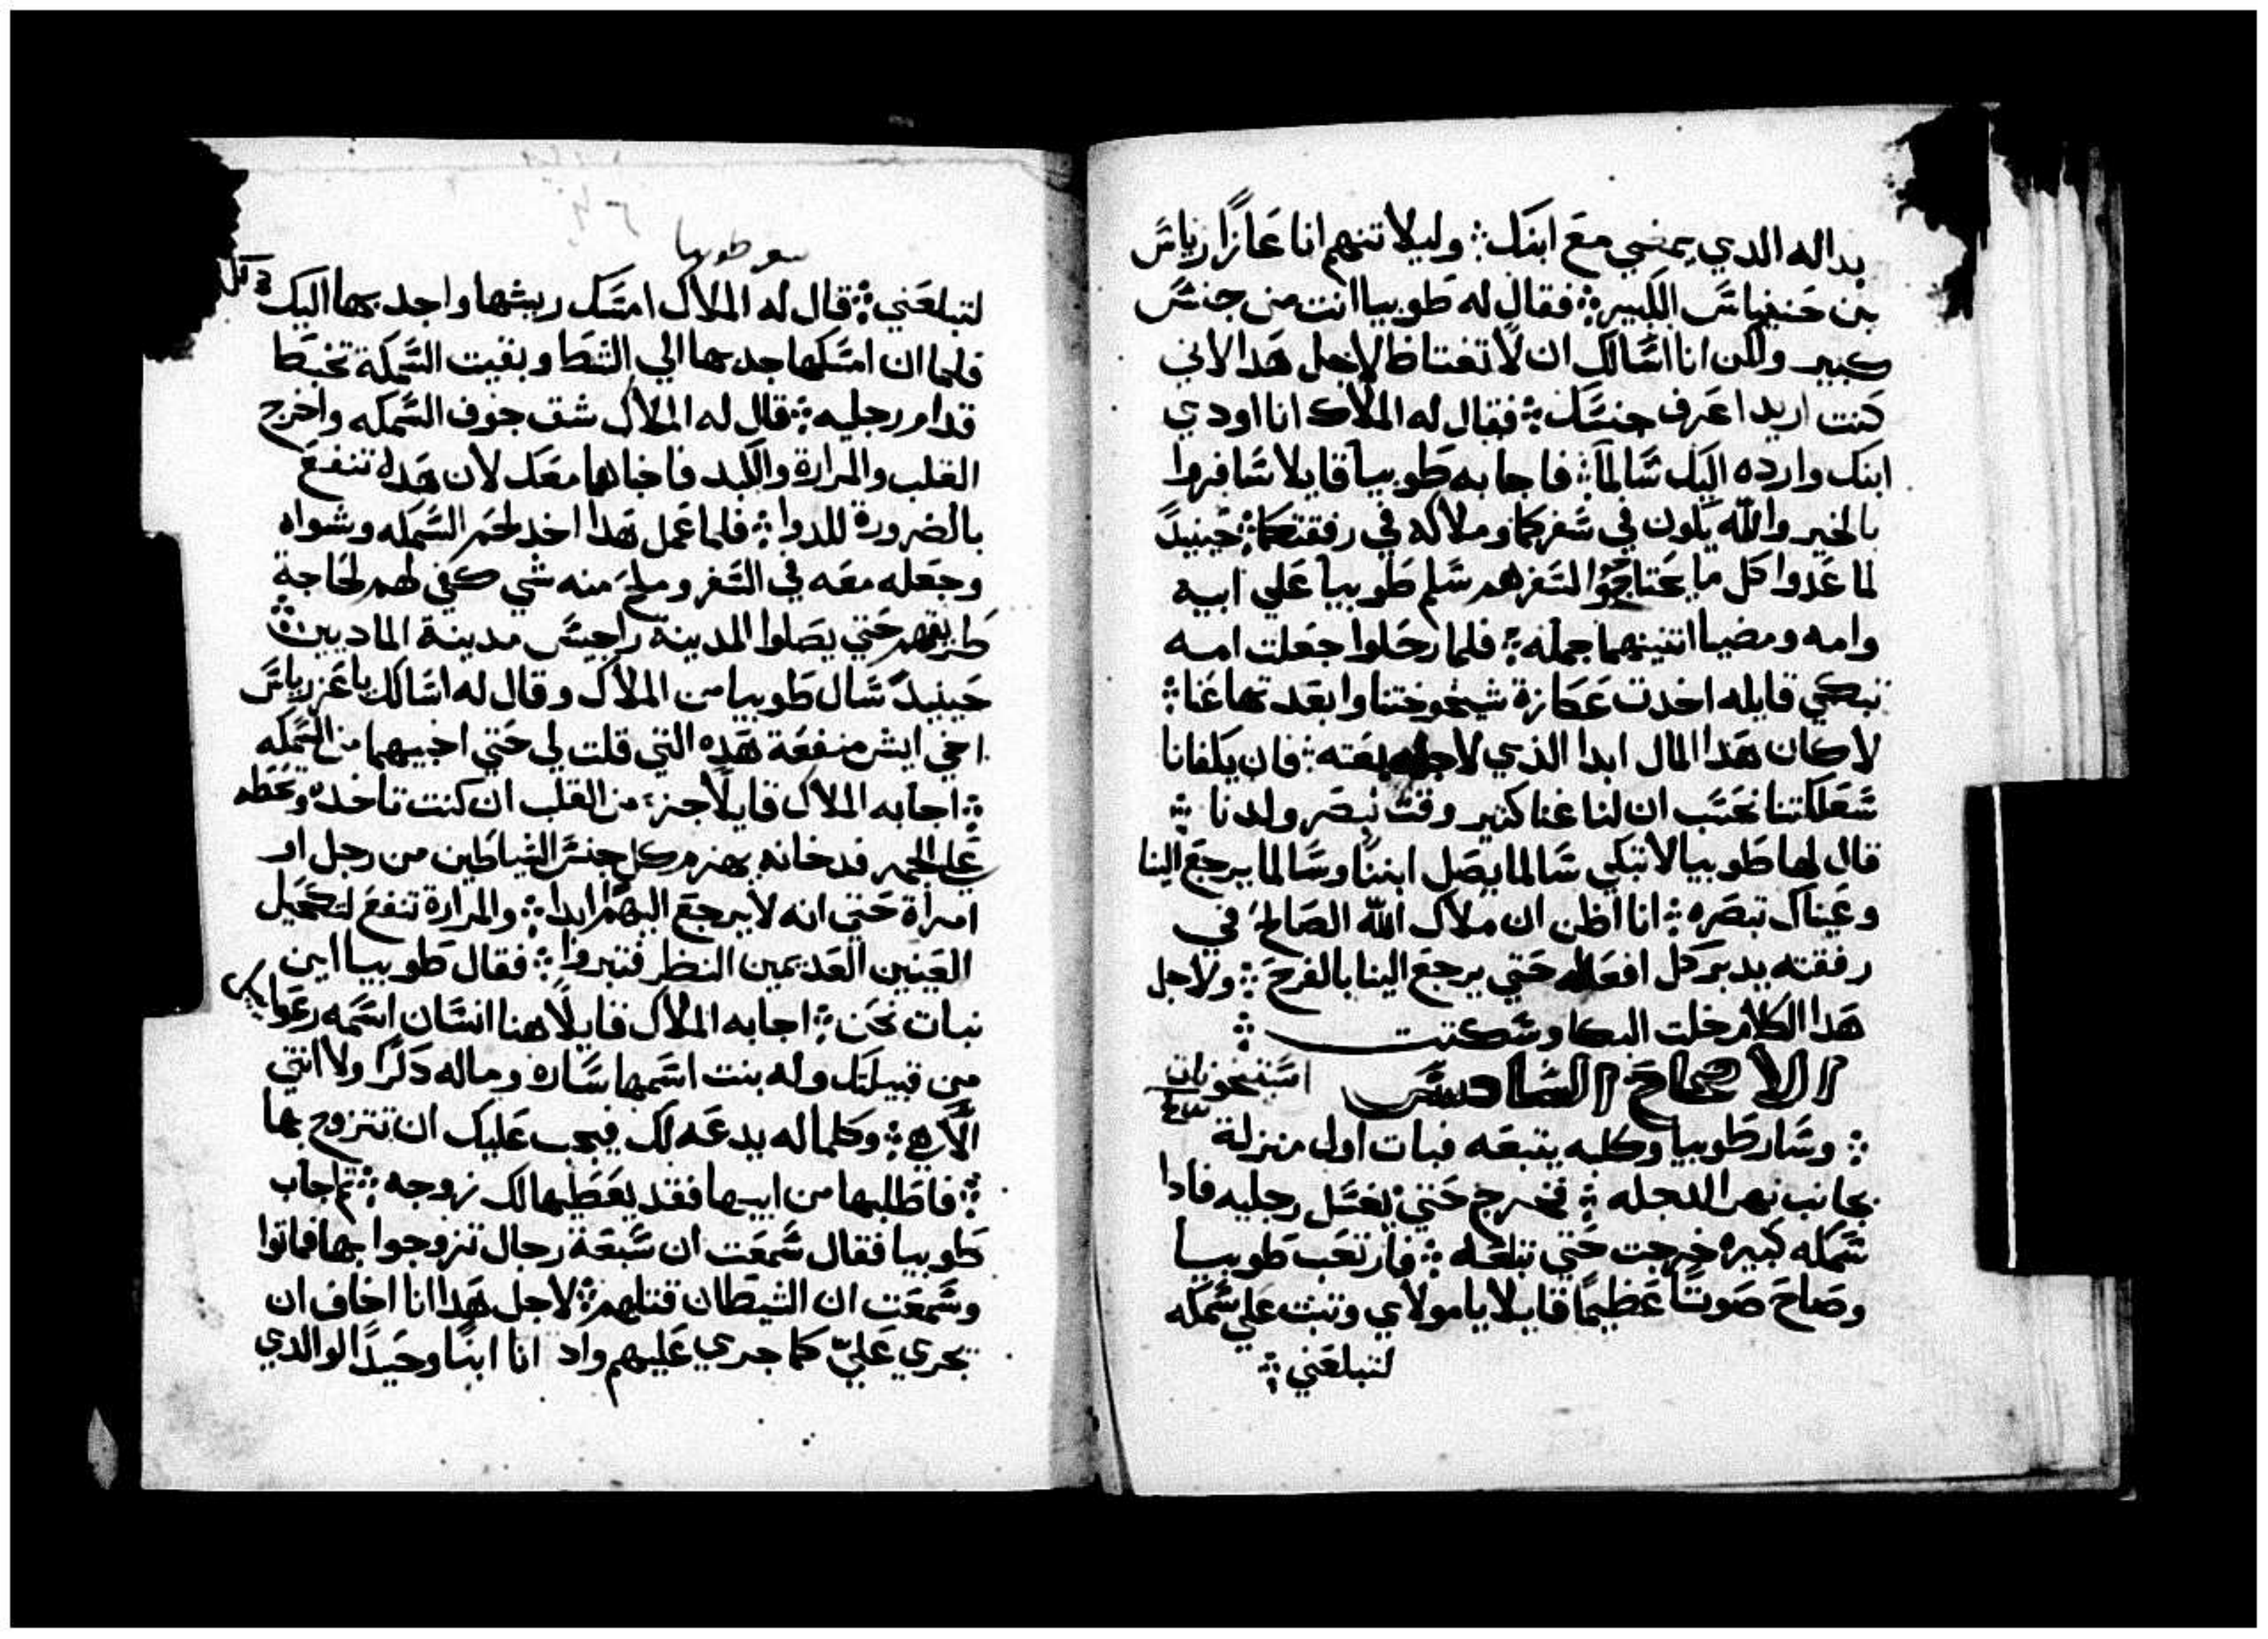 بداله الدي يمضي مع ابنك ؞ وليلا تتهم انا عازارياس
بن حننياس الكبير ؞ فقال له طوبيا انت من جنس
كبير ولكن انا اسالك ان لا تغتاظ لاجل هدا لاني
كنت اريد اعرف جنسك ؞ فقال له الملاك انا اودي
ابنك وارده اليك سالماً ؞ فاجابه طوبيا قايلا سافروا
بالخير والله يكون في سفركما وملاكه في رفقتكما ؞ حينيدً
لما عدوا كل ما يحتاجوا لسفرهم سلم طوبيا علي ابيه
وامه ومضيا اتنينهما جمله ؞ فلما رحلوا جعلت امه
تبكي قايله اخدت عكازة شيخوختنا وابعدتها عنا ؞
لا كان هدا المال ابدا الذي لاجله بعته ؞ فان يكفانا
سعلكتنا نحسب ان لنا غنا كتير وقت نبصر ولدنا ؞
قال لها طوبيا لا تبكي سالما يصل ابننا وسالما يرجع الينا
وعيناك تبصره ؞ انا اظن ان ملاك الله الصالح في
رفقته يدبر كل افعاله حتي يرجع الينا بالفرح ؞ ولاجل
هدا الكلام خلت البكا وسكتت ؞
الاصحاح السادس استيخونات
؞ وسار طوبيا وكلبه يتبعه فبات اول منزلة
بجانب نهر الدجله ؞ فخرج حتي يغسل رجليه فادا
سمكه كبيره خرجت حتي تبلعه ؞ فارتعب طوبيا
وصاح صوتاً عظيمًا قايلا يا مولاي وتبت علي سمكه
لتبلعني ؞
سفر طوبيا
لتبلعني ؞ قال له الملاك امسك ريشها واجدبها اليك
فلما ان امسكها جدبها الي الشط وبقيت السمكة تخبط
قدام رجليه ؞ قال له الملاك شق جوف السمكه واخرج
القلب والمرارة والكبد فاخباها معك لان هده تنفع
بالضرورة للدوا ؞ فلما عمل هدا اخد لحم السمكه وشواه
وجعله معه في السفر وملح منه شي كفي لهم لحاجة
طريقهم حتي يصلوا المدينة راجيس مدينة الماديين ؞
حينيدً سال طوبيا من الملاك وقال له اسالك يا عزرياس
اخي ايش منفعة هده التي قلت لي حتي اخبيهما من السمكه
؞ اجابه الملاك قايلاً جزء من القلب ان كنت تاخده وتحطه
علي الجمر فدخانه يهزم كل جنس الشياطين من رجل او
امراة حتي انه لا يرجع اليهم ابدا ؞ والمرارة تنفع لتكحيل
العينين العديمين النظر فتبروا ؞ فقال طوبيا اين
نبات نحن ؞ اجابه الملاك قايلًا هنا انسان اسمه رعوايل
من قبيلتك وله بنت اسمها ساره وماله دكرًا ولا انتي
الّا هي ؞ وكلما له يدعه لك فيجب عليك ان تتزوج بها
؞ فاطلبها من ابيها فقد يعطيها لك زوجه ؞ تم اجاب
طوبيا فقال سمعت ان سبعة رجال تزوجوا بها فماتوا
وسمعت ان الشيطان قتلهم ؞ لاجل هدا انا اخاف ان
تجري عليّ كما جري عليهم واد انا ابنًا وحيدًا لوالدي